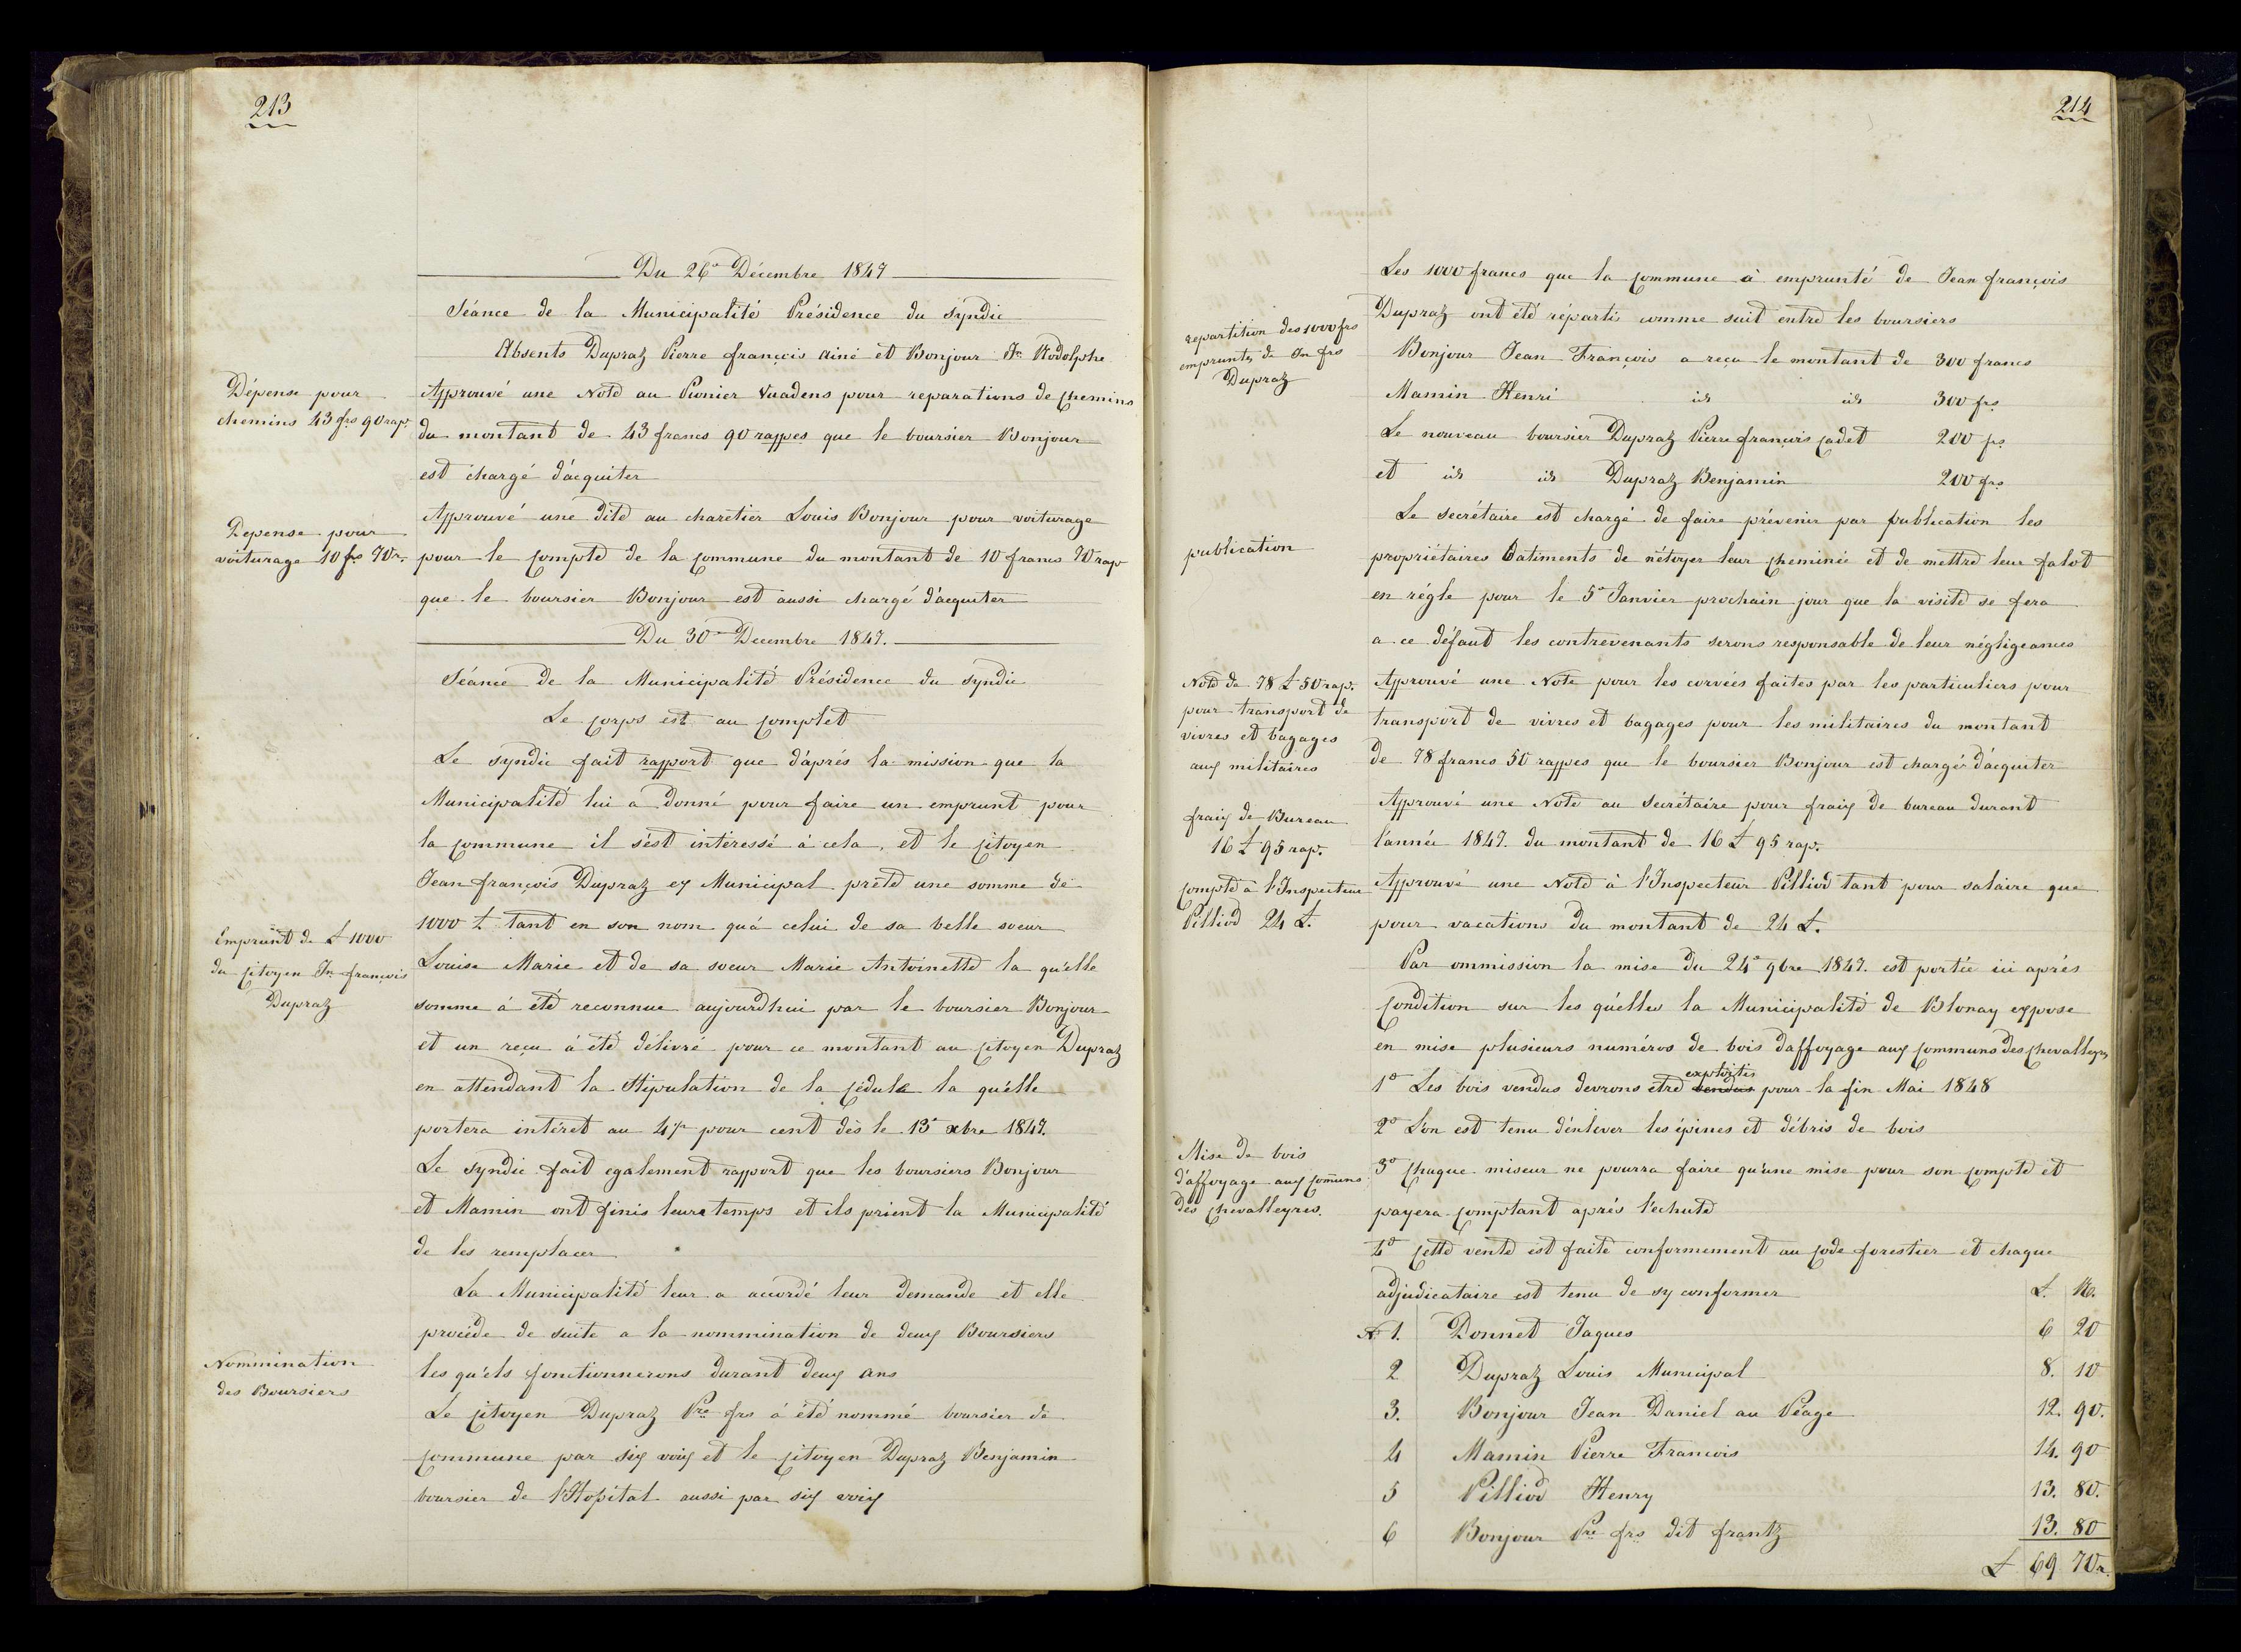 213
Du 26e Décembre 1847
Séance de la Municipalité Présidence du syndic
Absents Dupraz Pierre françois ainé et Bonjour Jn Rodolphe
Dépense pour
chemins 43 frs 90 rap.
Approuvé une Note au Pionier Vuadens pour reparations de chemins
du montant de 43 francs 90 rappes que le boursier Bonjour
est chargé d'acquiter
Depense pour
voiturage 10 frs 70 r.
Approuvé une dite au charetier Louis Bonjour pour voiturage
pour le compte de la commune du montant de 10 francs 70 rap
que le boursier Bonjour est aussi chargé d'acquiter
Du 30e Decembre 1847.
Séance de la Municipalité Présidence du syndic
Le corps est au complet
Le syndic fait rapport que d'aprés la mission que la
Municipalité lui a donné pour faire un emprunt pour
la commune il s'est intéressé à cela, et le citoyen
Jean françois Dupraz ex Municipal prête une somme de
Emprunt de £ 1000
du citoyen Jn françois
Dupraz
1000 £ tant en son nom qu'à celui de sa belle soeur
Louise Marie et de sa soeur Marie Antoinette la qu'elle
somme à été reconnue aujourdhui par le boursier Bonjour
et un reçu à été délivré pour ce montant au citoyen Dupraz
en attendant la Stipulation de la cédule la qu'elle
portera intéret au 4 pr pour cent dès le 13e xbre 1847.
Le syndic fait egalement rapport que les boursiers Bonjour
et Mamin ont finis leurs temps et ils prient la Municipalité
de les remplacer
La Municipalité leur a accordé leur demande et elle
procède de suite a la nommination de deux Boursiers
Nommination
des Boursiers
les qu'els fonctionnerons durant deux ans
Le citoyen Dupraz Pre frs à été nommé boursier de
commune par six voix et le citoyen Dupraz Benjamin
boursier de l'Hopital aussi par six voix
214
Les 1000 francs que la commune à emprunté de Jean françois
Dupraz ont été réparti comme suit entre les boursiers
repartition des 1000 frs
empruntés de Jn frs
Dupraz
Bonjour Jean François a reçu le montant de 300 francs
Mamin Henri id id 300 frs
Le nouveau boursier Dupraz Pierre françois cadet 200 frs
et id id Dupraz Benjamin 200 frs
publication
Le secrétaire est chargé de faire prévenir par publication les
propriétaires batiments de nétoyer leur cheminée et de mettre leur falot
en régle pour le 5e Janvier prochain jour que la visite se fera
a ce défaut les contrevenants serons responsable de leur négligeances
Note de 78 £ 50 rap.
pour transport de
vivres et bagages
aux militaires
Approuvé une Note pour les corvées faites par les particuliers pour
transport de vivres et bagages pour les militaires du montant
de 78 francs 50 rappes que le boursier Bonjour est chargé d'acquiter
frais de Bureau
16 £ 95 rap.
Approuvé une Note au Secrétaire pour fraix de bureau durant
l'année 1847. du montant de 16 £ 95 rap.
compte à l'Inspecteur
Pilliod 24 £.
Approuvé une Note à l'Inspecteur Pilliod tant pour salaire que
pour vacations du montant de 24 £.
Par ommission la mise du 24e 9bre 1847. est portée ici aprés
condition sur les qu'elles la Municipalité de Blonay expose
en mise plusieurs numéros de bois daffoyage aux communs des chevalleyres
exploités
1o Les bois vendus devrons etre vendus pour la fin Mai 1848
2o L'on est tenu d'enlever les épines et débris de bois
Mise de bois
d'affoyage aux comuns
des chevalleyres.
3o chaque miseur ne pourra faire qu'une mise pour son compte et
payera comptant aprés l'echute
4o cette vente est faite conformement au code forestier et chaque
adjudicataire est tenu de sy conformer £. Rp.
No 1. Donnet Jaques 6 20
2 Dupraz Louis Municipal 8. 10
3. Bonjour Jean Daniel au Péage 12. 90.
4 Mamin Pierre Francois 14. 90
5 Pilliod Henry 13. 80.
6 Bonjour Pre frs dit frantz 13. 80
£ 69 70 r.